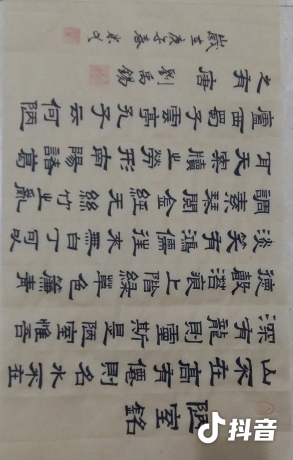 陋室銘
山不在高有僊則名水不在
深有龍則靈斯是陋室惟吾
德馨苔痕上階綠草色簾青
淡笑有鴻儒往來無白丁可以
調素琴閱金經无絲竹之亂
耳无案牘之勞形南陽諸葛
廬西蜀子雲亭孔子云何陋
之有 唐 劉禹錫
歲在庚子春
抖音